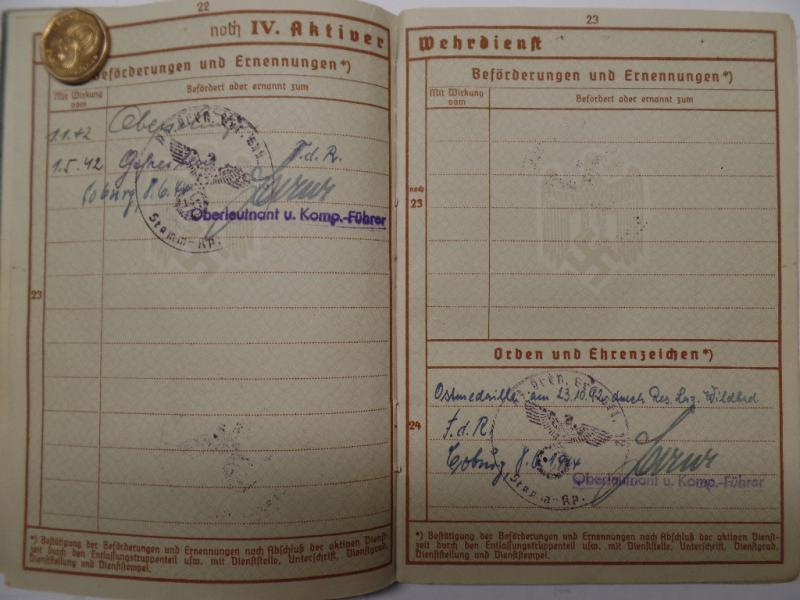 22
noch IV. Aktiver
Beförderungen und Ernennungen*)
Mit Wirkung vom
Befördert oder ernannt zum
1.1.42
1.5.42 Gefreiter F.d.R.
Coburg, 8.6.44
Oberleutnant u. Komp.-Führer
Stamm-Kp.
23
*) Bestätigung der Beförderungen und Ernennungen nach Abschluß der aktiven Dienst-
zeit durch den Entlassungstruppenteil usw. mit Dienststelle, Unterschrift, Dienstgrad,
Dienststellung und Dienststempel.
23
Wehrdienst
Beförderungen und Ernennungen*)
Mit Wirkung vom
Befördert oder ernannt zum
noch
23
Orden und Ehrenzeichen*)
Ostmedaille am 23.10.42 durch Res. Laz. Wildbad
24
F.d.R.
Coburg, 8.6.1944
Oberleutnant u. Komp.-Führer
Stamm-Kp.
*) Bestätigung der Beförderungen und Ernennungen nach Abschluß der aktiven Dienst-
zeit durch den Entlassungstruppenteil usw. mit Dienststelle, Unterschrift, Dienstgrad,
Dienststellung und Dienststempel.